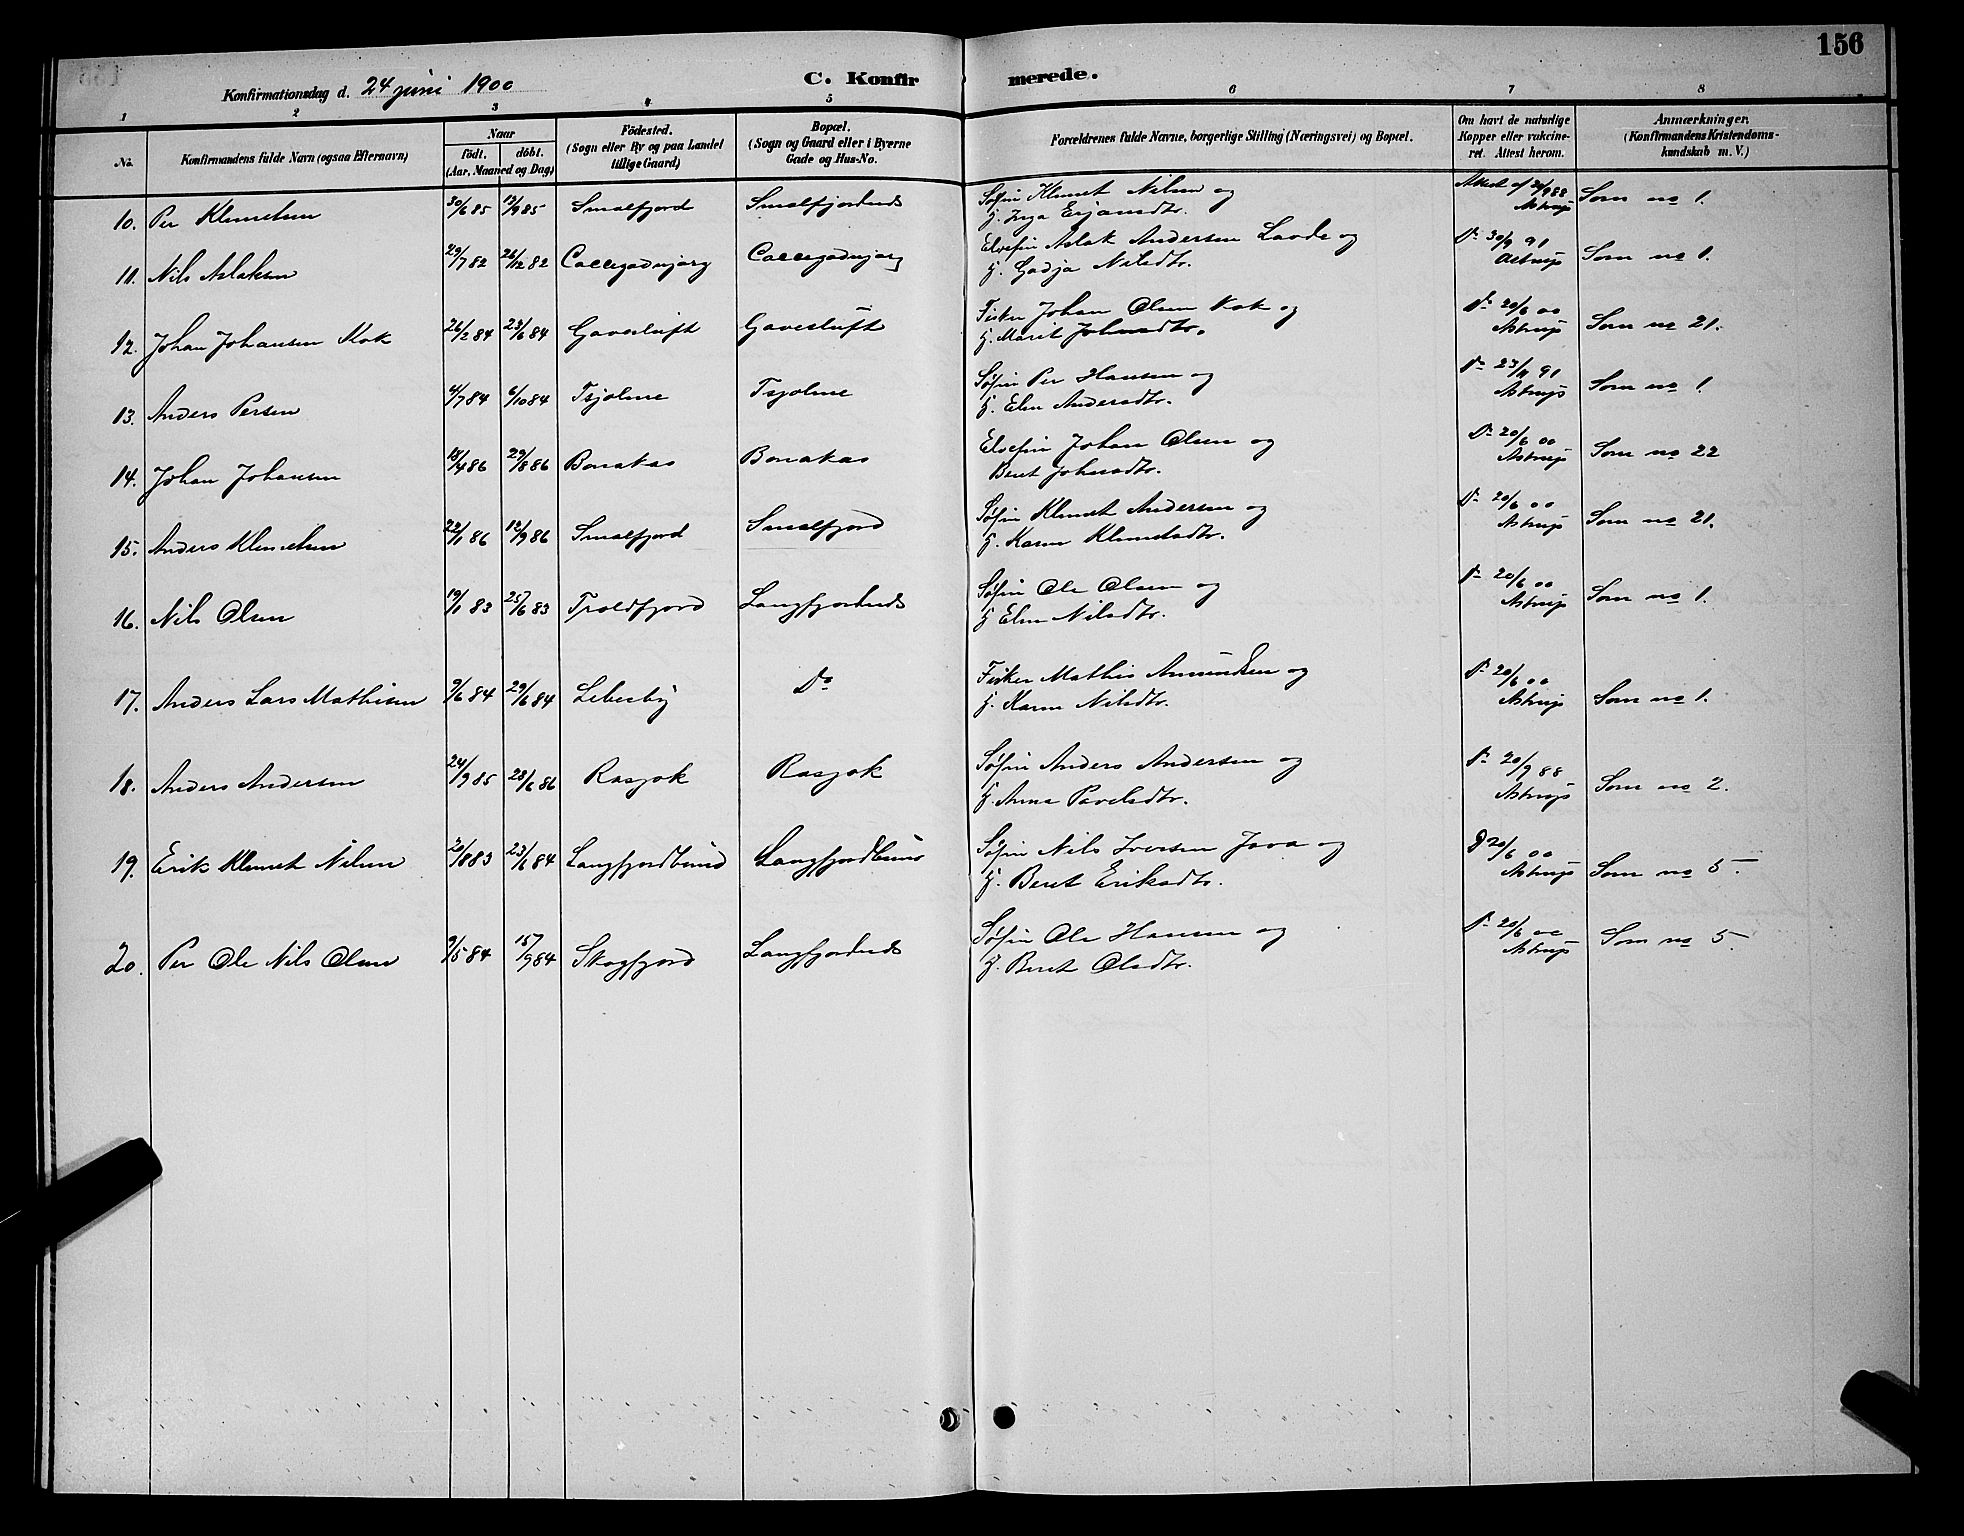 156
C. Konfirmerede.
Konfirmationsdag d. 24 juni 1900
1 2 3 4 5 6 7 8
No. Konfirmandens fulde Navn (ogsaa Efternavn) Naar födt. döbt. (Aar, Maaned og Dag) Födested. (Sogn eller By og paa Landet tillige Gaard) Bopæl. (Sogn og Gaard eller i Byerne Gade og Hus-No. Forældrenes fulde Navne, borgerlige Stilling (Næringsvei) og Bopæl. Om havt de naturlige Kopper eller vakcineret. Attest herom. Anmærkninger. (Konfirmandens Kristendomskundskab m. V.)
10. Per Klemetsen 30/6 85 13/9 85 Smalfjord Smalfjordbund Søfin Klemet Nilsen og Attest af 20/9 88 Som no 1.
H. Inga Erjansdtr. Astrup
11. Nils Aslaksen 29/7 82 26/12 82 Elvefin Aslak Andersen Laode og Do 30/9 91 Som no 1.
H. Gadja Nilsdtr. Astrup
12. Johan Johansen Kok 26/2 84 23/6 84 Gavesluft Gavesluft Fisker Johan Olsen Kok og Do 20/6 00 Som no 21.
H. Marit Johnsdtr. Astrup
13. Anders Persen 4/7 84 6/10 84 Tsjolme Tsjolme Søfin Per Hansen og Do 23/11 91 Som no 1.
H. Elen Andersdtr. Astrup
14. Johan Johansen 18/4 86 29/8 86 Bonakas Bonakas Elvefin Johan Olsen og Do 20/6 00 Som no 22
Beret Johnsdtr. Astrup
15. Anders Klemetsen 22/1 86 12/9 86 Smalfjord Smalfjord Søfin Klemet Andersen og Do 20/6 00 Som no 21.
H. Karen Klemetsdtr. Astrup
16. Nils Olsen 19/1 83 25/6 83 Troldfjord Langfjordbund Søfin Ole Olsen og Do 20/6 00 Som no 1.
H. Elen Nilsdtr. Astrup
17. Anders Lars Mathisen 9/6 84 29/6 84 Lebesby Do Fisker Mathis Amundsen og Do 20/6 00 Som no 1.
H. Karen Nilsdtr. Astrup
18. Anders Andersen 24/9 85 28/6 86 Rasjok Rasjok Søfin Anders Andersen og Do 20/9 88 Som no 2.
H. Anna Pavelsdtr. Astrup
19. Erik Klemet Nilsen 20/8 83 23/6 84 Langfjordbund Langfjordbund Søfin Nils Iversen Java og Do 20/6 00 Som no 5.
H. Beret Eriksdtr. Astrup
20. Per Ole Nils Olsen 9/5 84 15/9 84 Skogfjord Langfjordbund Søfin Ole Hansen og Do 20/6 00 Som no 5.
H. Beret Olsdtr. Astrup